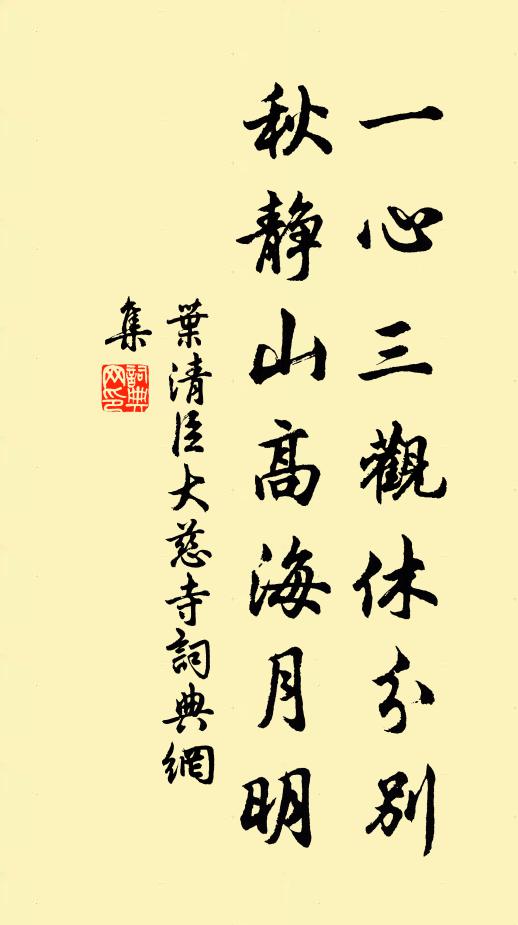 一心三觀休分別
秋靜山高海月明
葉清臣大慈寺詞典網
集
詞典
网印